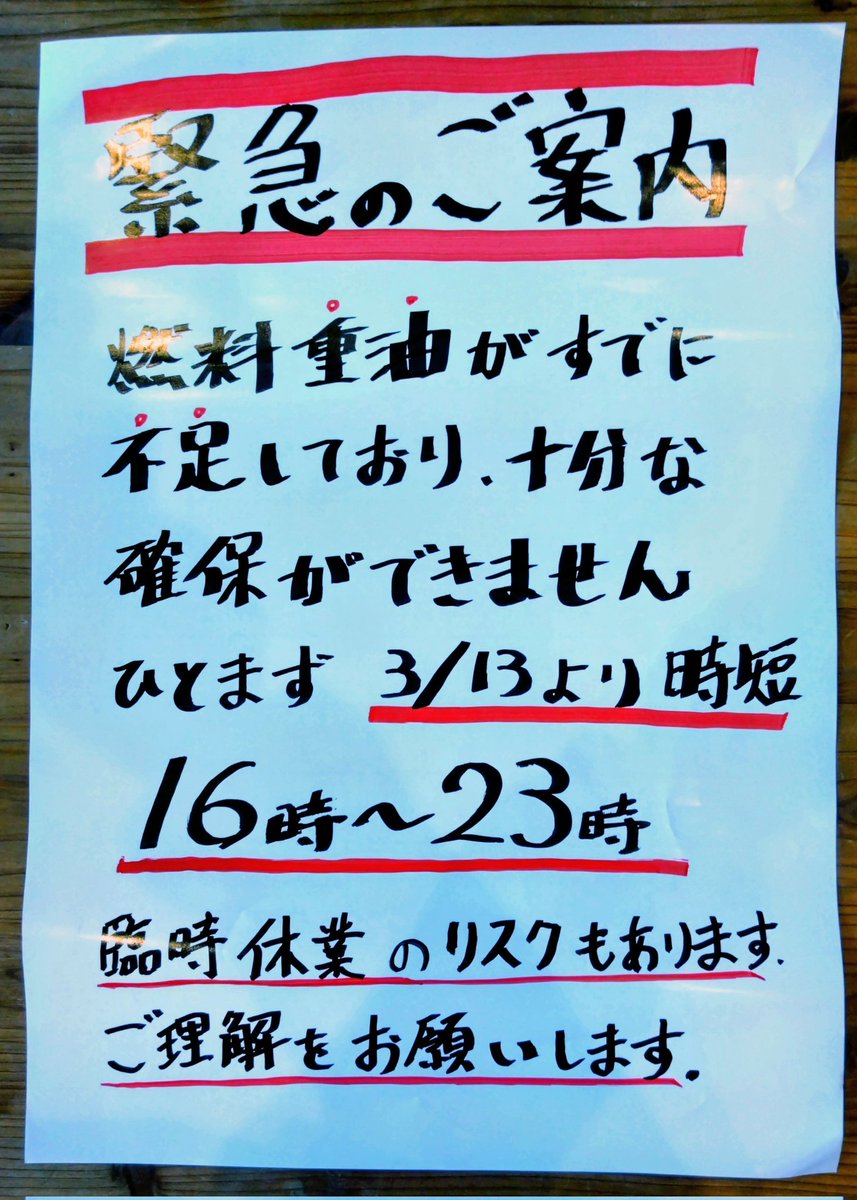 緊急のご案内
燃料重油がすでに
不足しており、十分な
確保ができません
ひとまず 3/13より時短
16時〜23時
臨時休業のリスクもあります.
ご理解をお願いします。